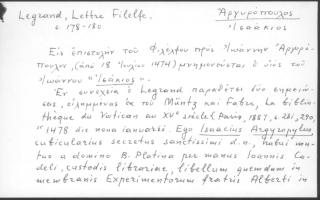 Legrand, Lettre Filelfe.
σ. 178-180
Ἀργυρόπουλος
Ἰσαάκιος
Εἰς ἐπιστολὴν τοῦ Φιλέλφου πρὸς Ἰωάννην Ἀργυρό-
πουλον, (ἀπὸ 18 Ἰουλίου 1474) μνημονεύεται ὁ υἱὸς τοῦ
Ἰωάννου "Ἰσάκιος".
Ἐν συνεχείᾳ ὁ Legrand παραθέτει δύο σημειώ-
σεις, εἰλημμένας ἐκ τοῦ Müntz καὶ Fabre, La biblio-
thèque du Vatican au XVe siècle (Paris, 1887, σ. 281, 290,
"1478 die nona ianuarii. Ego Isaacius Argyropylus,
cubicularius secretus sanctissimi d.n., habui mu-
tuo a domino B. Platina per manus Ioannis Ca-
deli, custodis librariae, libellum quemdam in
membranis Experimentorum fratris Alberti in